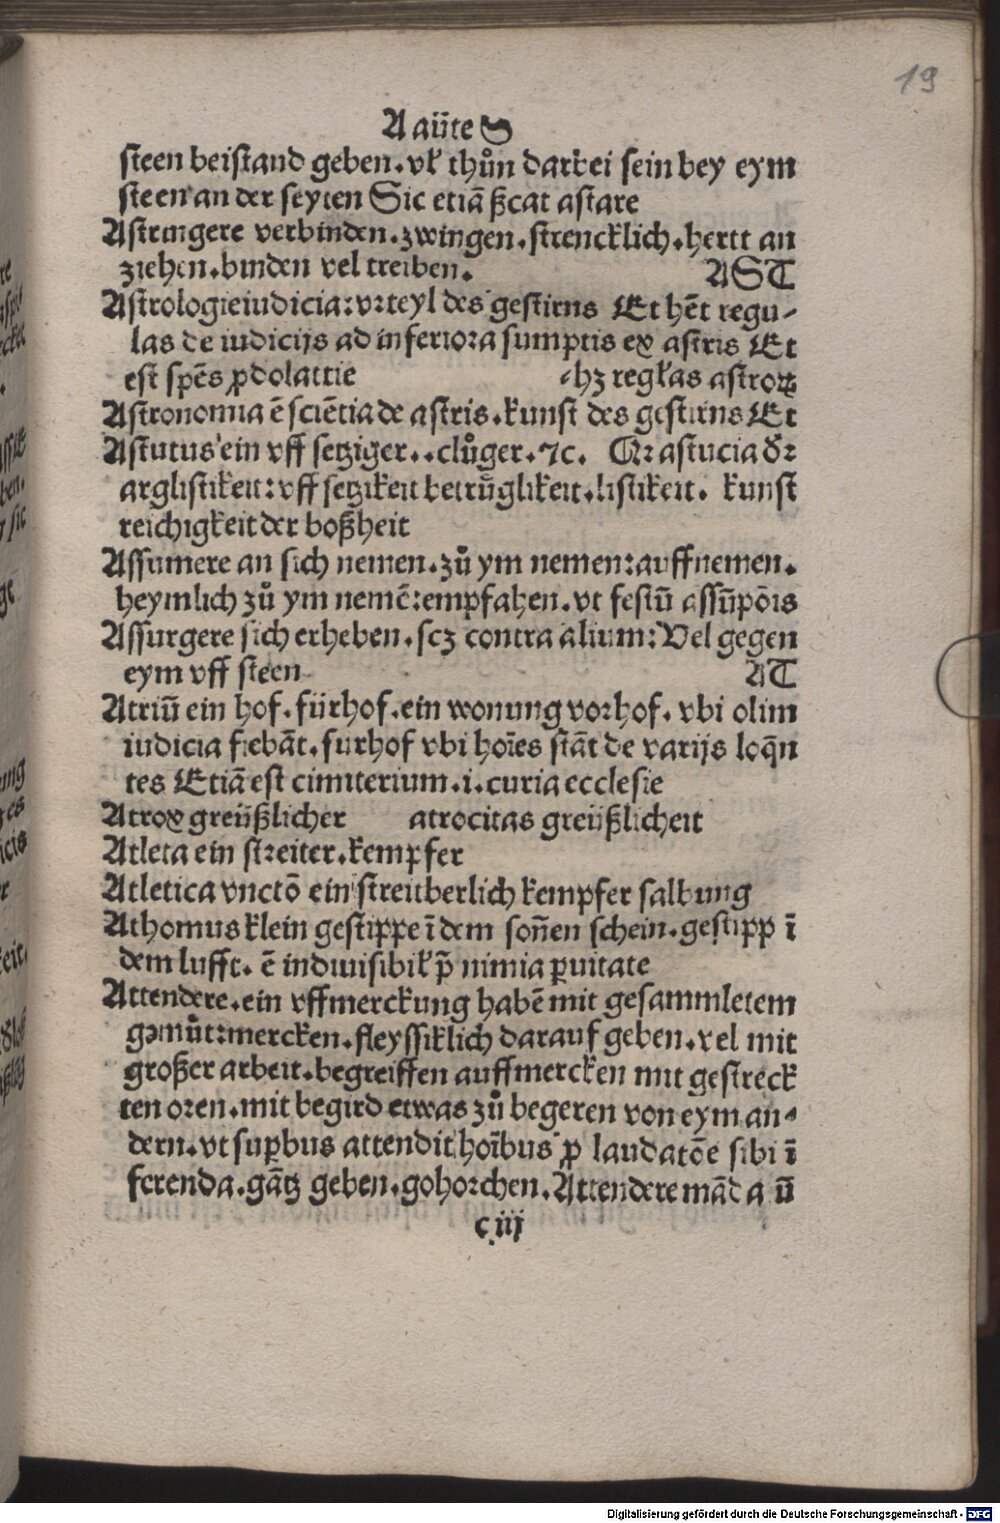 19
A aūte S
steen beistand geben. vł thůn darbei sein bey eym
steen an der seyten Sic etiā ßcat astare
Astringere verbinden. zwingen. strencklich. hertt an
ziehen. binden vel treiben. AST
Astrologie iudicia: vrteyl des gestirns Et hēt regu-
las de iudicijs ad inferiora sumptis ex astris Et
est spēs ꝓdolattie -hꝫ regłas astroꝝ
Astronomia ē sciētia de astris. kunst des gestirns Et
Astutus ein vff setziger.. clůger. ⁊c. Qr astucia dr
arglistikeit: vff setzikeit betrůglikeit. listikeit. kunst
reichigkeit der boßheit
Assumere an sich nemen. zů ym nemen: auffnemen.
heymlich zů ym nemē: empfahen. vt festū assūpōis
Assurgere sich erheben. scꝫ contra alium: Vel gegen
eym vff steen AT
Atriū ein hof. fürhof. ein wonung vorhof. vbi olim
iudicia fiebāt. furhof vbi hoīes stāt de varijs loq̄n
tes Etiā est cimiterium. i. curia ecclesie
Atrox greüßlicher atrocitas greüßlicheit
Atleta ein streiter. kempfer
Atletica vnctō ein streitberlich kempfer salbung
Athomus klein gestippe ī dem soñen schein. gestipp ī
dem lufft. ē indiuisibił p̄ nimia ꝑuitate
Attendere. ein vffmerckung habē mit gesammletem
gemůt: mercken. fleyssiklich darauf geben. vel mit
großer arbeit. begreiffen auffmercken mit gestreck
ten oren. mit begird etwas zů begeren von eym an-
dern. vt suꝑbus attendit hoībus ꝓ laudatōe sibi ī
ferenda. gātz geben. gohorchen. Attendere māda ū
c iij
Digitalisierung gefördert durch die Deutsche Forschungsgemeinschaft - DFG